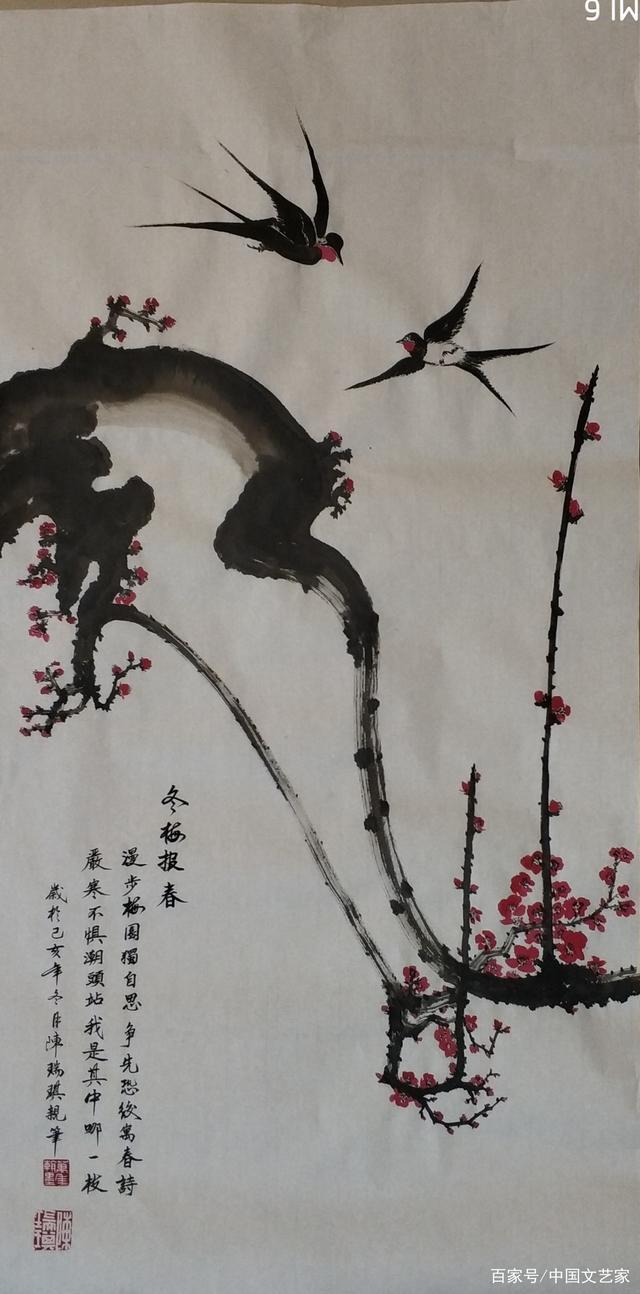 冬梅报春
漫步梅園獨自思争先恐後寫春詩
嚴寒不惧潮頭站我是其中哪一枝
歲於己亥年冬月陳瑞琪親筆
百家号/中国文艺家